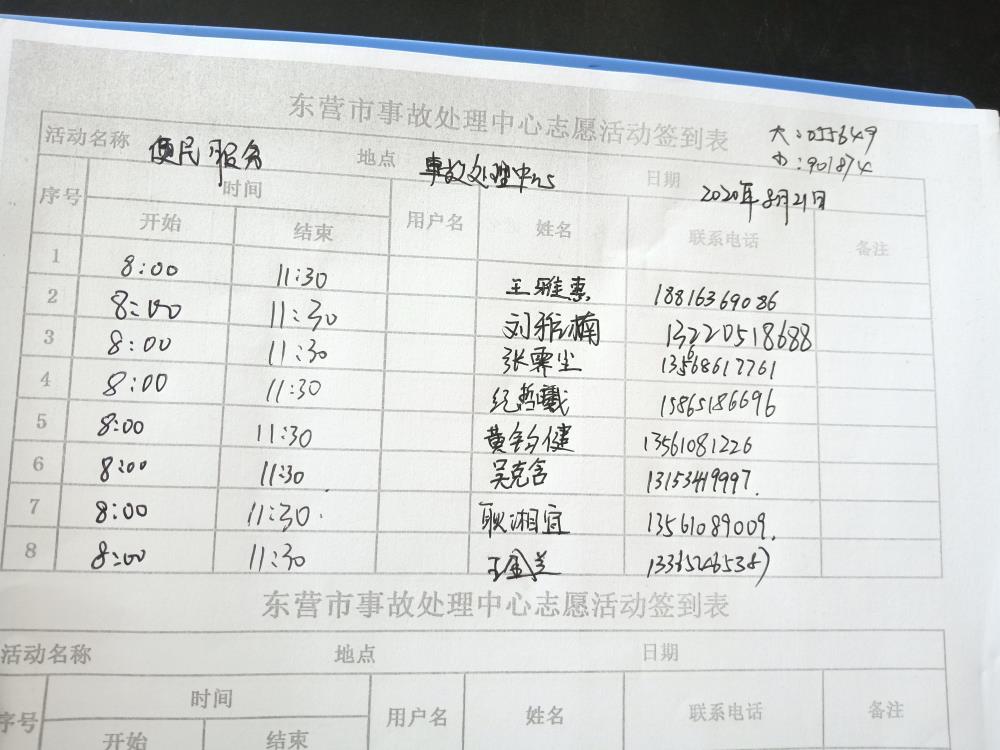 东营市事故处理中心志愿活动签到表
大:055649
中:901874
活动名称 便民服务 地点 事故处理中心 日期 2020年8月21日
序号 时间 用户名 姓名 联系电话 备注
开始 结束
1 8:00 11:30 王雅惠 18816369086
2 8:00 11:30 刘雅楠 13220518688
3 8:00 11:30 张霁尘
4 8:00 11:30 纪哲曦 15865186696
5 8:00 11:30 黄钧健 13561081226
6 8:00 11:30 吴克含 13153419997.
7 8:00 11:30. 耿湘宜 13561089009.
8 8:00 11:30 王金兰
东营市事故处理中心志愿活动签到表
活动名称 地点 日期
序号 时间 用户名 姓名 联系电话 备注
开始 结束